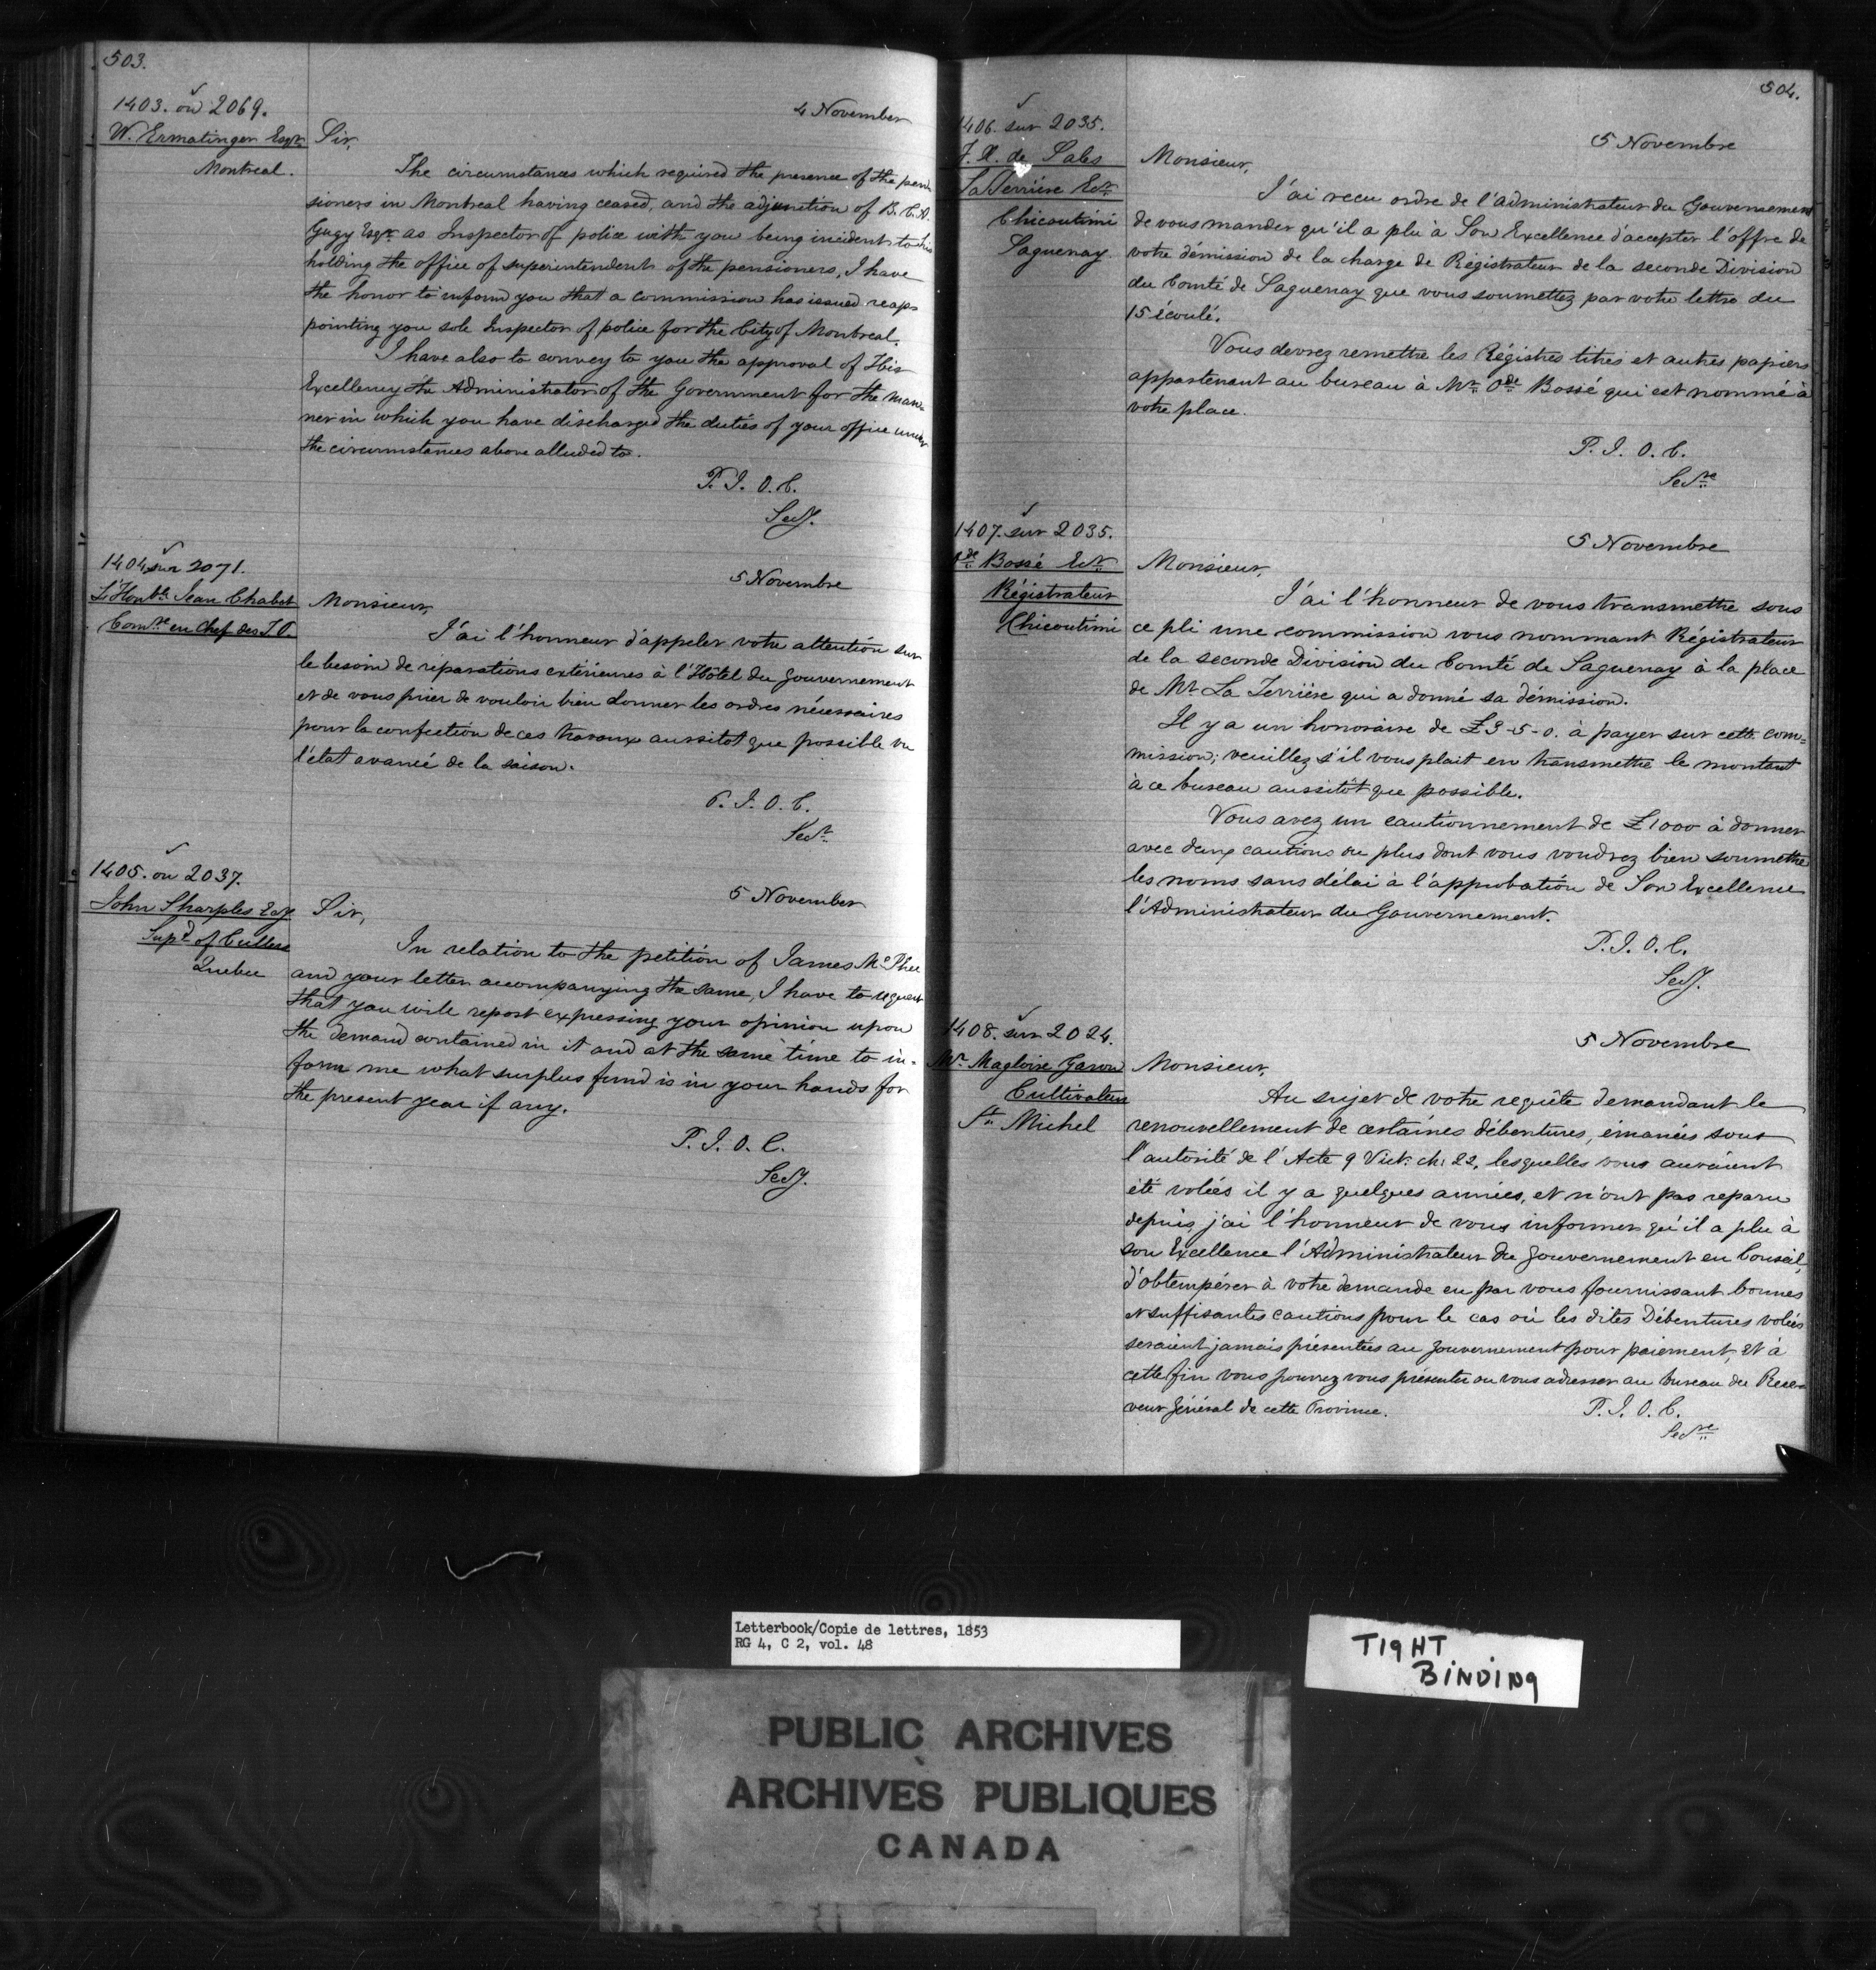 503.
1403. on 2069.
4 November
W. Ermatinger Esqr.
Montreal.
Sir,
The circumstances which required the presence of the pen-
sioners in Montreal having ceased, and the adjunction of B. C. A.
Gugy Esqr. as Inspector of police with you being incident to his
holding the office of superintendent of the pensioners, I have
the honor to inform you that a commission has issued reap-
pointing you sole Inspector of police for the City of Montreal.
I have also to convey to you the approval of His
Excellency the Administrator of the Government for the man-
ner in which you have discharged the duties of your office under
the circumstances above alluded to.
P. J. O. C.
Secy.
1404 sur 2071.
5 Novembre
L'Honble. Jean Chabot
Comre. en Chef des T. P.
Monsieur,
J'ai l'honneur d'appeler votre attention sur
le besoin de réparations extérieures à l'Hôtel du Gouvernement
et de vous prier de vouloir bien donner les ordres nécessaires
pour la confection de ces travaux aussitot que possible vu
l'état avancé de la saison.
P. J. O. C.
Secr.
1405. on 2037.
5 November
John Sharples Esqr.
Supd. of Cullers
Quebec
Sir,
In relation to the petition of James Mc Phee
and your letter accompanying the same, I have to request
that you will report expressing your opinion upon
the demand contained in it and at the same time to in-
form me what surplus fund is in your hands for
the present year if any.
P. J. O. C.
Secy.
504.
1406. sur 2035.
5 Novembre
F. X. de Sales
LaTerrière Ecr.
Chicoutimi
Saguenay
Monsieur,
J'ai recu ordre de l'Administrateur du Gouvernement
de vous mander qu'il a plu à Son Excellence d'accepter l'offre de
votre démission de la charge de Régistrateur de la seconde Division
du Comté de Saguenay que vous soumettez par votre lettre du
15 écoulé.
Vous devrez remettre les Régistres titres et autres papiers
appartenant au bureau à Mr. Ode. Bossé qui est nommé à
votre place.
P. J. O. C.
Secre.
1407. sur 2035.
5 Novembre
Ode. Bossé Ecr.
Régistrateur
Chicoutimi
Monsieur,
J'ai l'honneur de vous transmettre sous
ce pli une commission vous nommant Régistrateur
de la seconde Division du Comté de Saguenay à la place
de Mr. La Terrière qui a donné sa démission.
Il y a un honoraire de £3-5-0. à payer sur cette com=
mission; veuillez s'il vous plait en transmettre le montant
à ce bureau aussitôt que possible.
Vous avez un cautionnement de £1000 à donner
avec deux cautions ou plus dont vous voudrez bien soumettre
les noms sans délai à l'approbation de Son Excellence
l'Administrateur du Gouvernement.
P. J. O. C.
Secy.
1408. sur 2024.
5 Novembre
Mr. Magloire Garon
Cultivateur
St. Michel
Monsieur,
Au sujet de votre requête demandant le
renouvellement de certaines débentures, émanées sous
l'autorité de l'Acte 9 Vict. ch. 22, lesquelles vous auraient
été volées il y a quelques années, et n'ont pas reparu
depuis, j'ai l'honneur de vous informer qu'il a plu à
son Excellence l'Administrateur du Gouvernement en Conseil,
d'obtempérer à votre demande en par vous fournissant bonnes
et suffisantes cautions pour le cas où les dites Débentures volées
seraient jamais présentées au Gouvernement pour paiement, et à
cette fin vous pourrez vous présenter ou vous adresser au bureau du Rece-
veur Général de cette Province.
P. J. O. C.
Secre.
Letterbook/Copie de lettres, 1853
RG 4, C 2, vol. 48
TIGHT
BINDING
PUBLIC ARCHIVES
ARCHIVES PUBLIQUES
CANADA